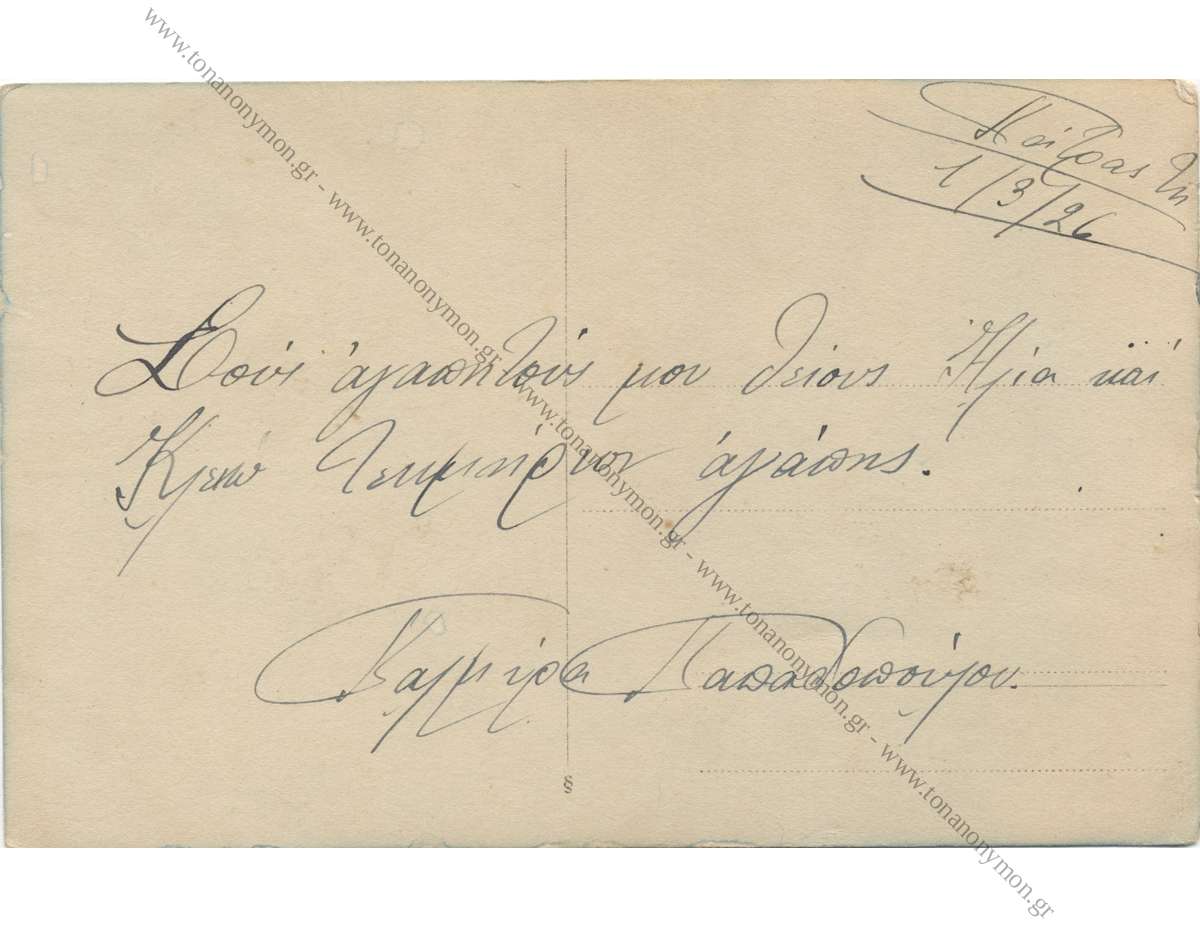 Πάτρας τη
1/3/26
Στούς ἀγαπητούς μου θείους Ἠλία καί
Κλειώ τεκμήριον ἀγάπης.
Παπαδοπούλου.
§
www.tonanonymon.gr - www.tonanonymon.gr - www.tonanonymon.gr - www.tonanonymon.gr - www.tonanonymon.gr